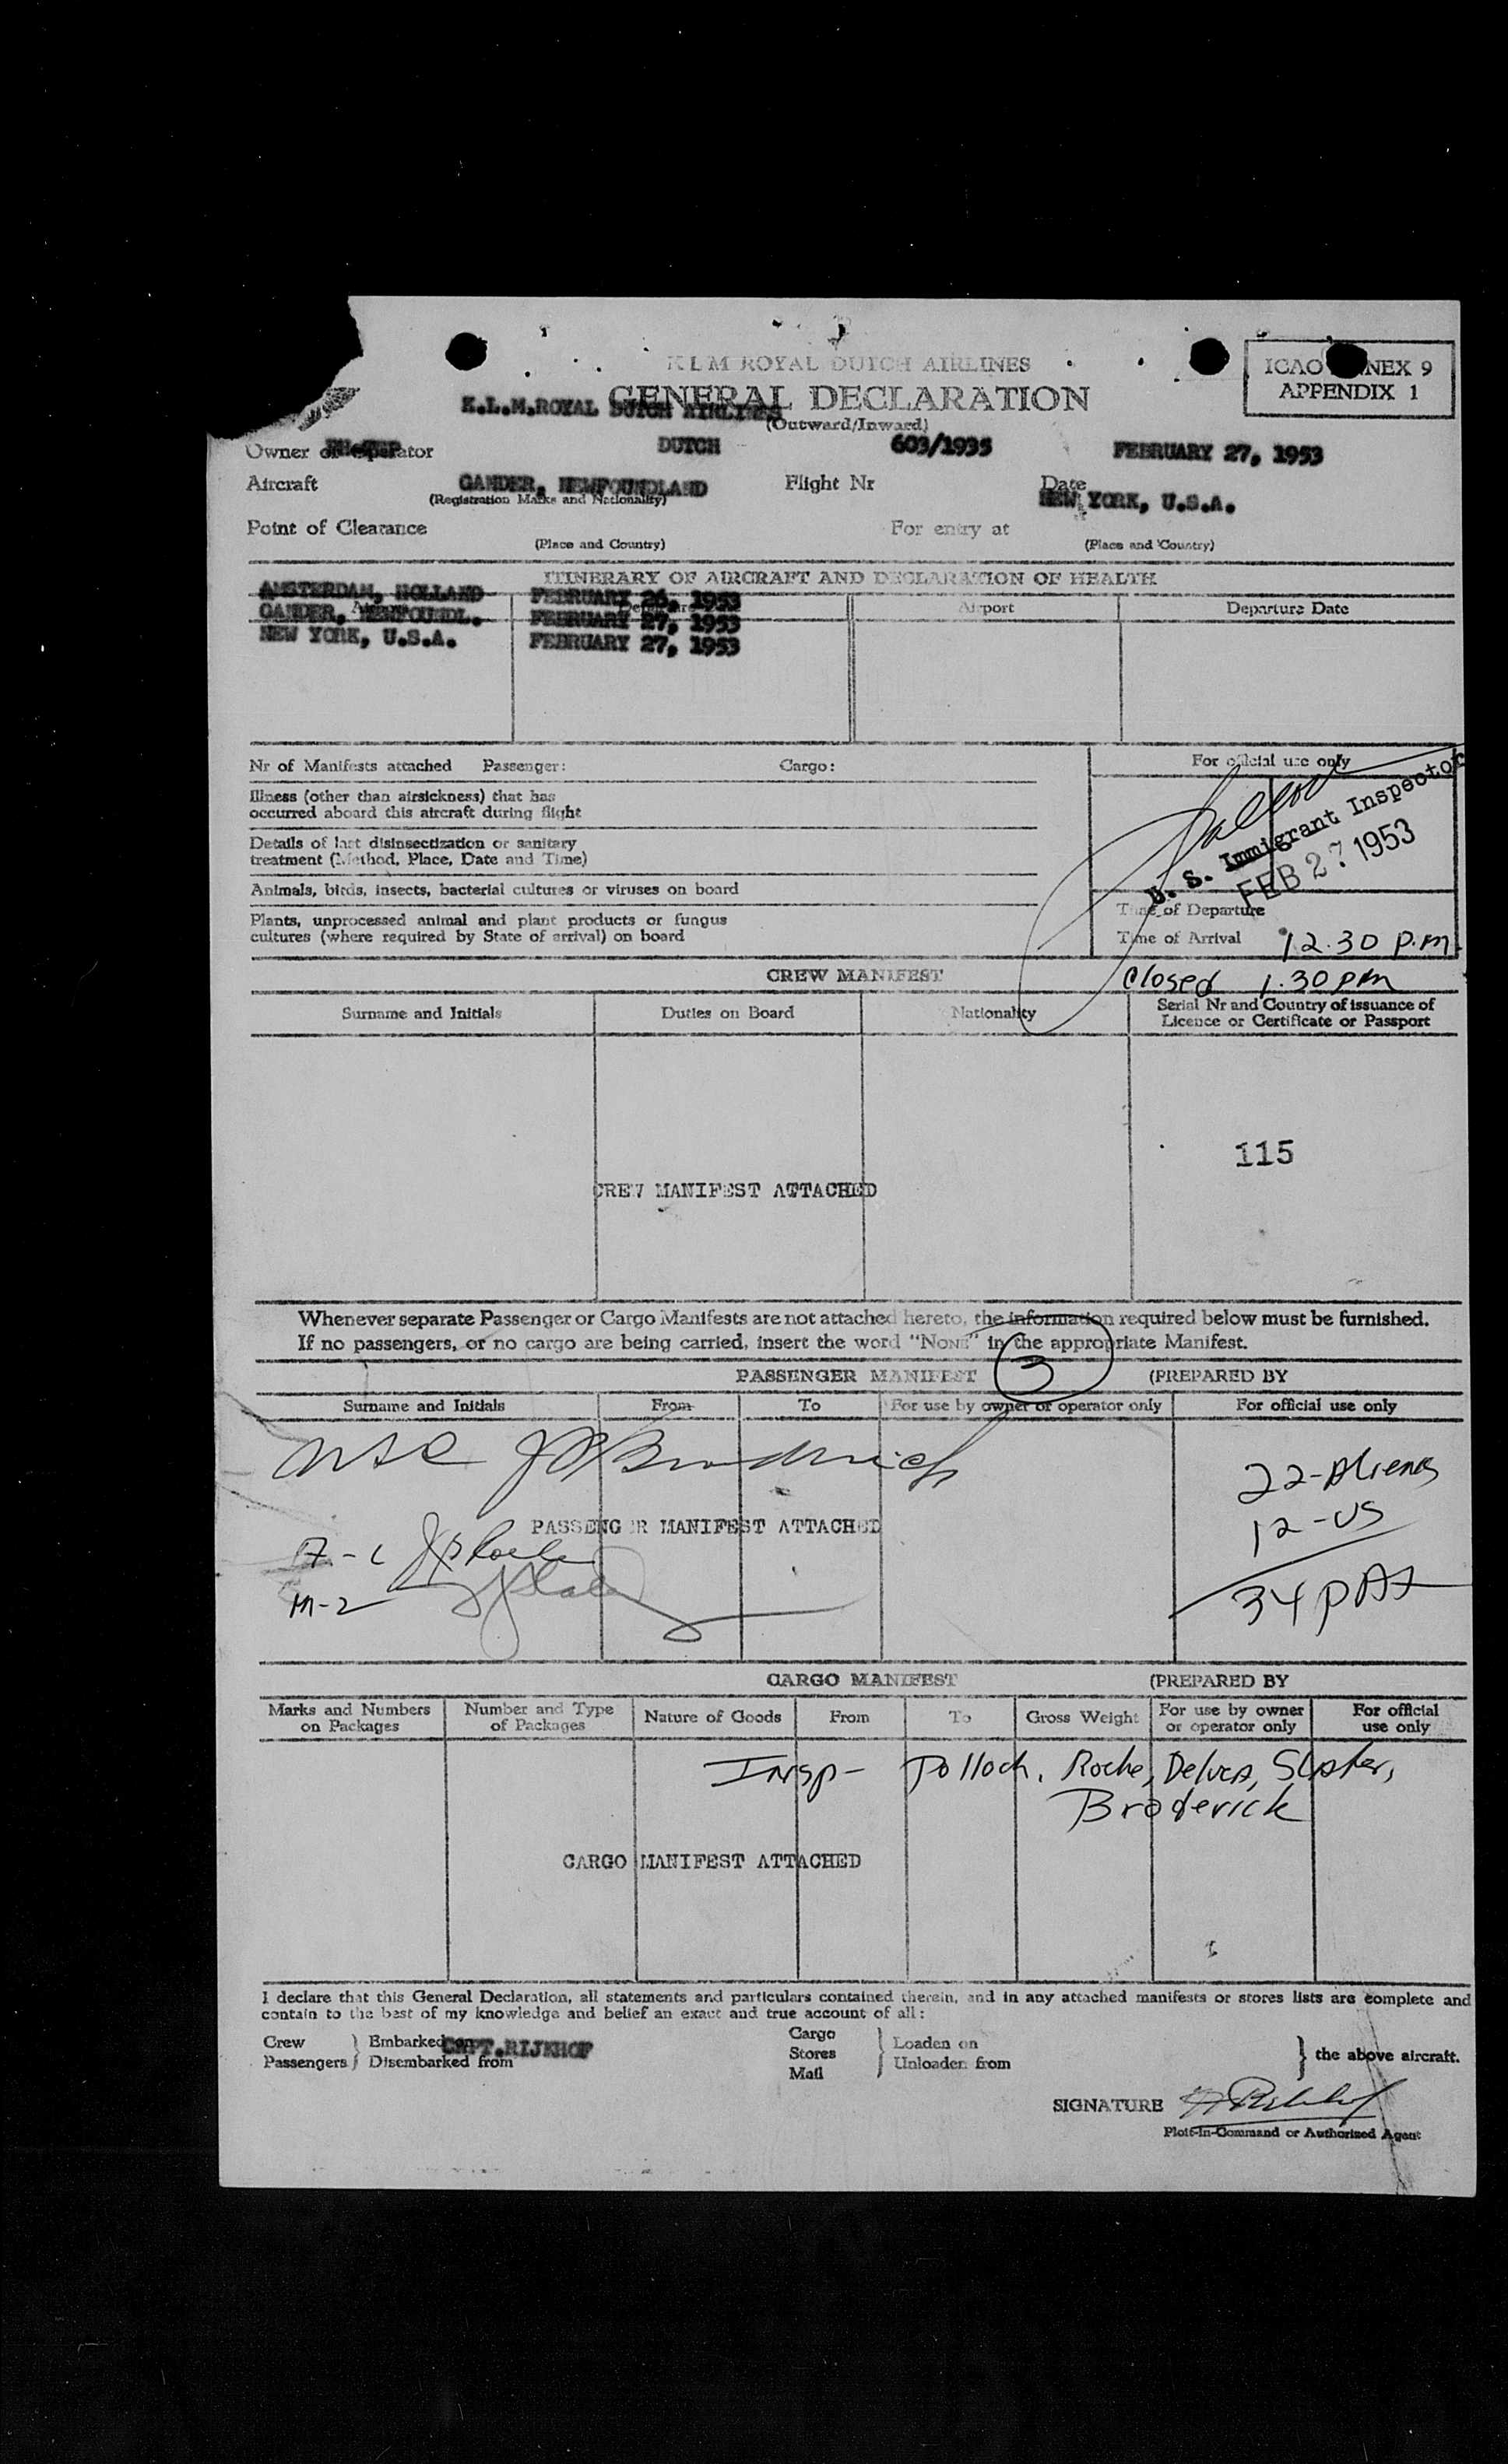 KLM ROYAL DUTCH AIRLINES
GENERAL DECLARATION
ICAO ANNEX 9
APPENDIX 1
K.L.M.ROYAL DUTCH AIRLINES
(Outward/Inward)
Owner or Operator
DUTCH 603/1935 FEBRUARY 27, 1953
Aircraft GANDER, NEWFOUNDLAND Flight Nr Date
(Registration Marks and Nationality) NEW YORK, U.S.A.
Point of Clearance For entry at
(Place and Country) (Place and Country)
ITINERARY OF AIRCRAFT AND DECLARATION OF HEALTH
AMSTERDAM, HOLLAND FEBRUARY 26, 1953
Airport Departure Date
GANDER, NEWFOUNDL. FEBRUARY 27, 1953
NEW YORK, U.S.A. FEBRUARY 27, 1953
Nr of Manifests attached Passenger: Cargo: For official use only
Illness (other than airsickness) that has
occurred aboard this aircraft during flight
Details of last disinsectization or sanitary
treatment (Method, Place, Date and Time)
U. S. Immigrant Inspector
FEB 27 1953
Animals, birds, insects, bacterial cultures or viruses on board
Plants, unprocessed animal and plant products or fungus
cultures (where required by State of arrival) on board
Time of Departure
Time of Arrival 12.30 P.M.
closed 1.30 pm
CREW MANIFEST
Surname and Initials Duties on Board Nationality Serial Nr and Country of issuance of
Licence or Certificate or Passport
115
CREW MANIFEST ATTACHED
Whenever separate Passenger or Cargo Manifests are not attached hereto, the information required below must be furnished.
If no passengers, or no cargo are being carried, insert the word "NONE" in the appropriate Manifest.
3
PASSENGER MANIFEST (PREPARED BY
Surname and Initials From To For use by owner or operator only For official use only
22-Aliens
12-US
34 PAX
PASSENGER MANIFEST ATTACHED
M-2
CARGO MANIFEST (PREPARED BY
Marks and Numbers
on Packages Number and Type
of Packages Nature of Goods From To Gross Weight For use by owner
or operator only For official
use only
Insp- Pollock, Roche,
Broderick
CARGO MANIFEST ATTACHED
I declare that this General Declaration, all statements and particulars contained therein, and in any attached manifests or stores lists are complete and
contain to the best of my knowledge and belief an exact and true account of all:
Crew Embarked on CAPT.RIJKHOF
Passengers Disembarked from
Cargo
Stores
Mail
Loaden on
Unloaden from
the above aircraft.
SIGNATURE
Pilot-In-Command or Authorized Agent